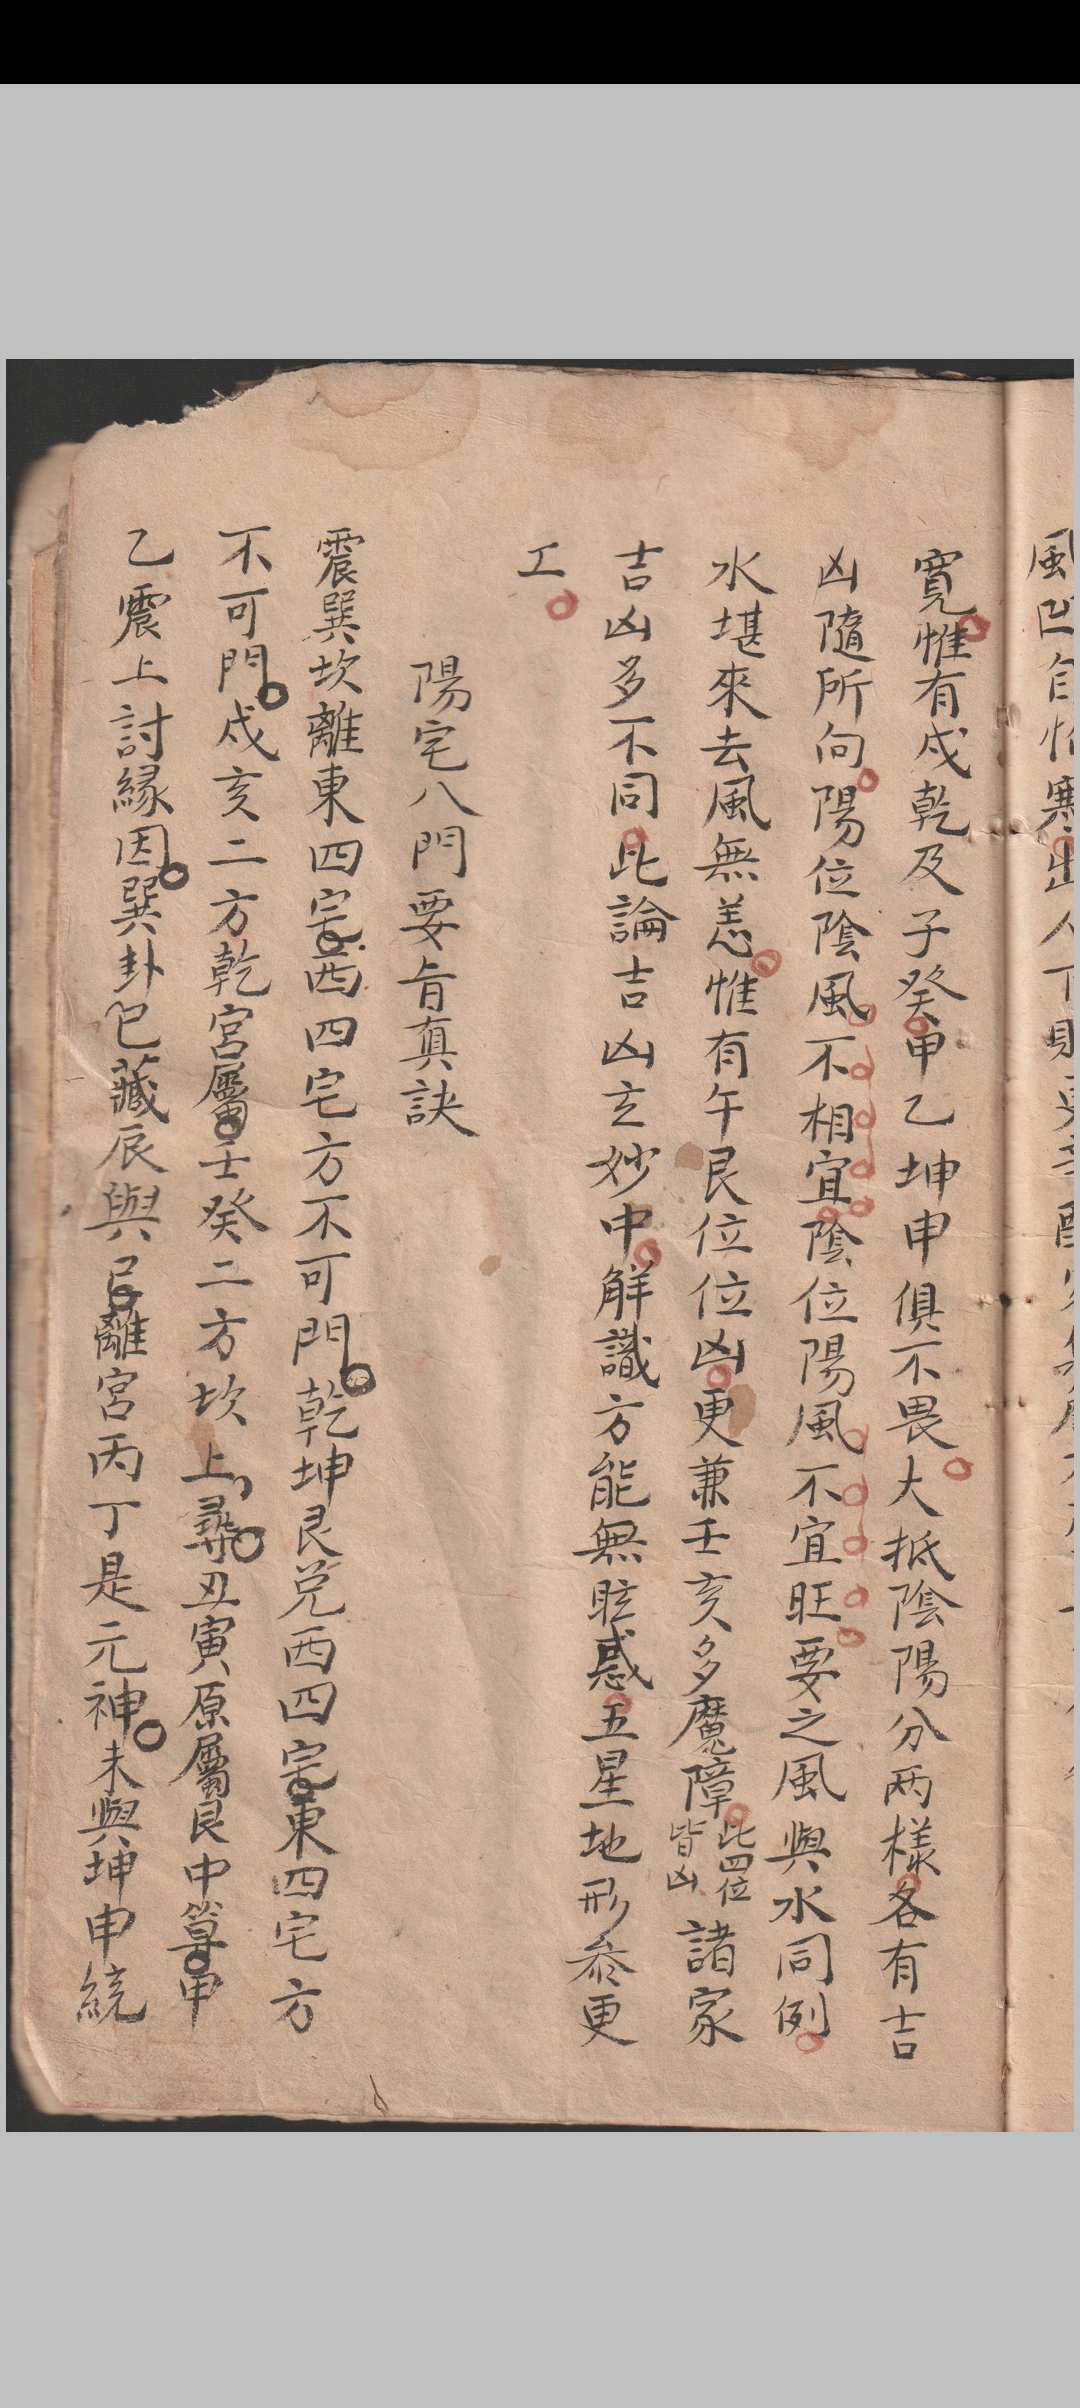 風凹自怕寒
寬惟有戍乾及子癸甲乙坤申俱不畏大抵陰陽分兩樣各有吉
凶隨所向陽位陰風不相宜陰位陽風不宜旺要之風與水同例
水堪來去風無恙惟有午艮位位凶更兼壬亥多魔障此四位皆凶諸家
吉凶多不同此論吉凶玄妙中解識方能無眩惑五星地形叅更
工
陽宅八門要旨真訣
震巽坎離東四宅西四宅方不可門乾坤艮兌西四宅東四宅方
不可門戍亥二方乾宮屬壬癸二方坎上尋丑寅原屬艮中算甲
乙震上討緣因巽卦巳藏辰與巳離宮丙丁是元神未與坤申統